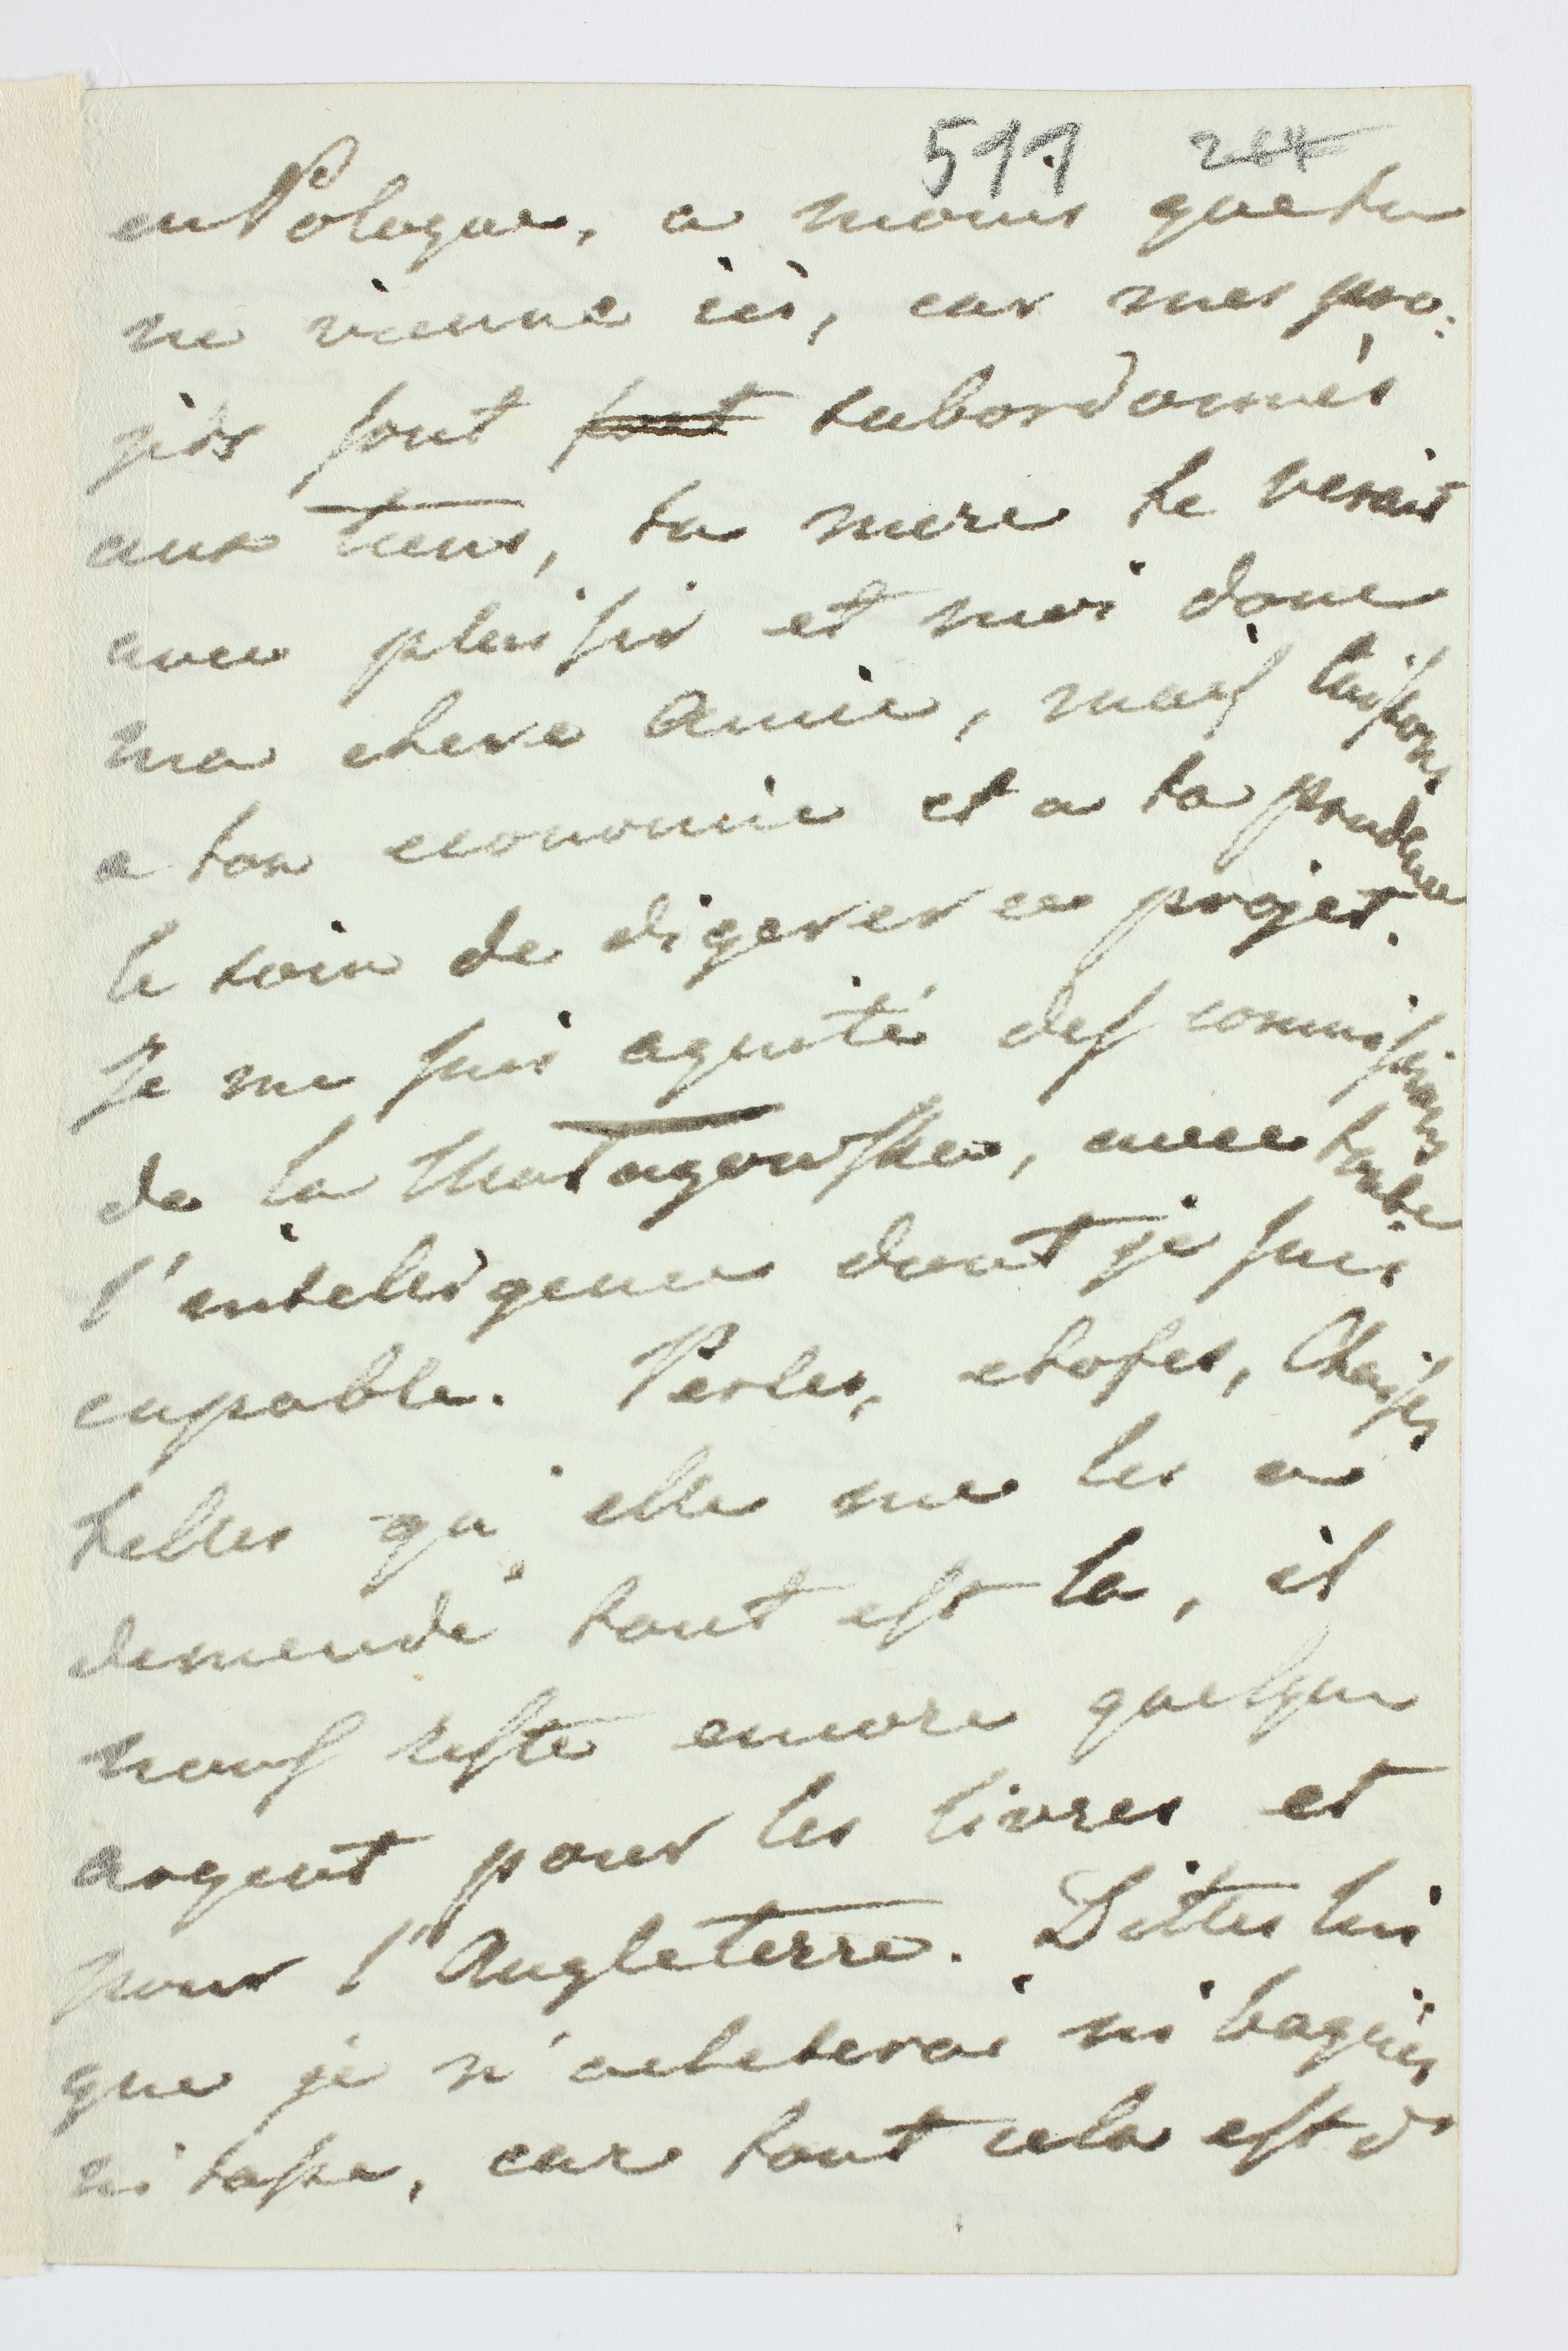 511 264
en Pologne, a moins que tu
ne vienne ici, car mes pro:
jets sont sont subordonnés
aux tiens, ta mere te verait
avec plaisir et moi donc
ma chere Amie, mais laissons
a ton economie et a ta prudence
le soin de digerer ce projet.
Je me suis aquité des commissions
de la Matagowska, avec toute
l'intelligence dont je suis
capable. Perles, etofes, Chaises
telles qu'elle me les a
demendé tout est la, il
nous reste encore quelque
argent pour les livres et
pour l'Angleterre. Dittes lui
que je n'acheterai ni bagües
ni tasse, care tout cela est d'